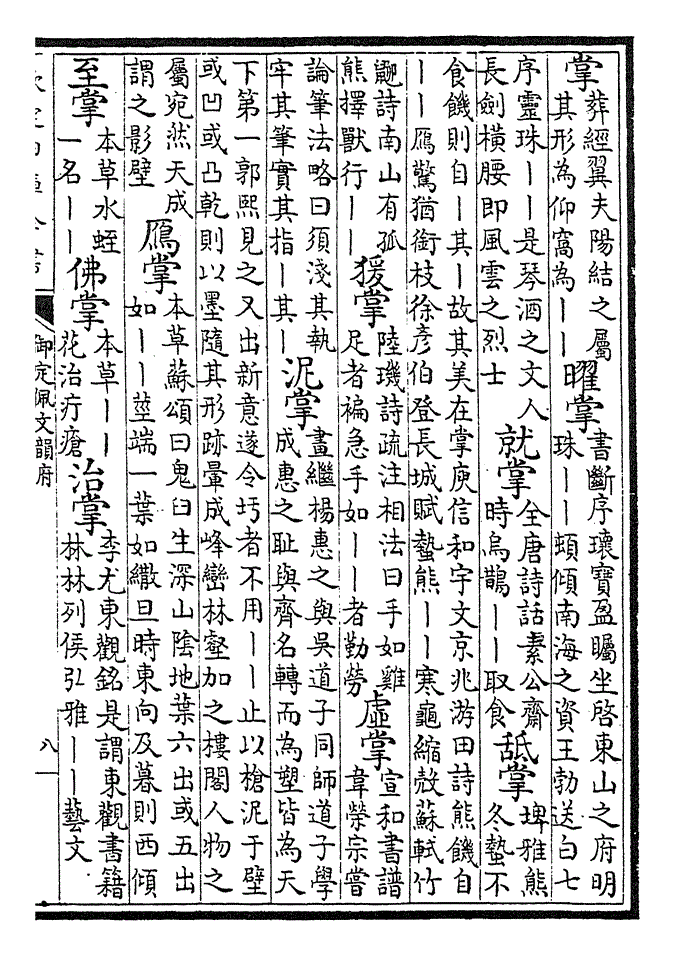 掌葬經翼夫陽結之屬其形為仰窩為丨丨曜掌書斷序瓌寶盈矚坐啓東山之府明珠丨丨頓傾南海之資王勃送白七
序靈珠丨丨是琴酒之文人長劍橫腰即風雲之烈士就掌全唐詩話素公齋時烏鵲丨丨取食舐掌埤雅熊冬蟄不
食饑則自丨其丨故其美在掌庾信和宇文京兆游田詩熊饑自丨丨鴈驚猶銜枝徐彦伯登長城賦蟄熊丨丨寒龜縮殼蘇軾竹
鼬詩南山有孤熊擇獸行丨丨猨掌陸璣詩疏注相法曰手如雞足者褊急手如丨丨者勤勞虛掌宣和書譜韋榮宗嘗
論筆法略曰須淺其執牢其筆實其指丨其丨泥掌畫繼楊惠之與吳道子同師道子學成惠之恥與齊名轉而為塑皆為天
下第一郭熙見之又出新意遂令圬者不用丨丨止以槍泥于壁或凹或凸乾則以墨隨其形跡暈成峰巒林壑加之樓閣人物之
屬宛然天成謂之影壁鴈掌本草蘇頌曰鬼臼生深山陰地葉六出或五出如丨丨莖端一葉如繖旦時東向及暮則西傾
至掌本草水蛭一名丨丨佛掌本草丨丨花治疔瘡治掌李尤東觀銘是謂東觀書籍林林列侯弘雅丨丨藝文
御定佩文韻府
八